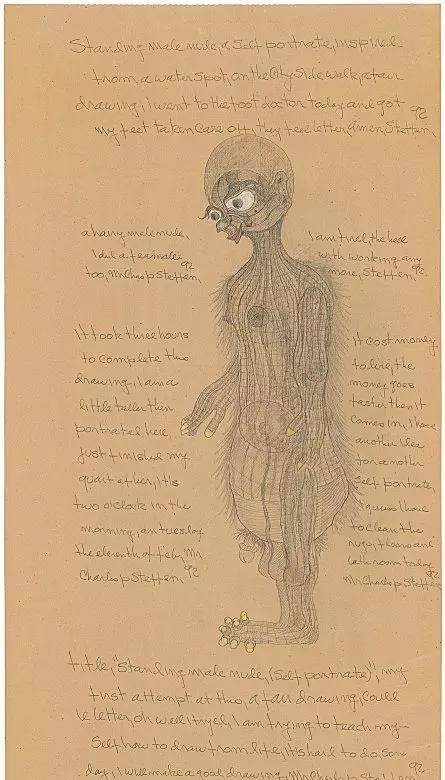 Standing male nude, a self portrait, inspired
from, a water spot, on the City side walk, a fair
drawing, I went to the foot doctor today and got
my feet taken care off, they feel better, Amen, Steffen, 92
a hairy male nude,
I did a female
too, Mr Charles p Steffen, 92
I am tired, the hose
with working any
more, Steffen, 92
It took three hours
to complete this
drawing, I am a
little taller then
portrated here,
just finished my
quart of beer, it is
two oclock in the
morning, on tuesday
the eleventh of feb, Mr
Charles p Steffen, 92
It cost money
to live, the
money goes
faster then it
comes in, I have
another Idea
for another
self portrait,
I guess I have
to clean the
rugs, floors and
bathroom today, 92
Mr Charles p Steffen
title, "Standing male nude, (Self portrate)", my
first attempt at this, a fair drawing, could
be better, oh well I tryed, I am trying to teach my-
self how to draw from life, it is hard to do, som
day, I will make a good drawing, 92